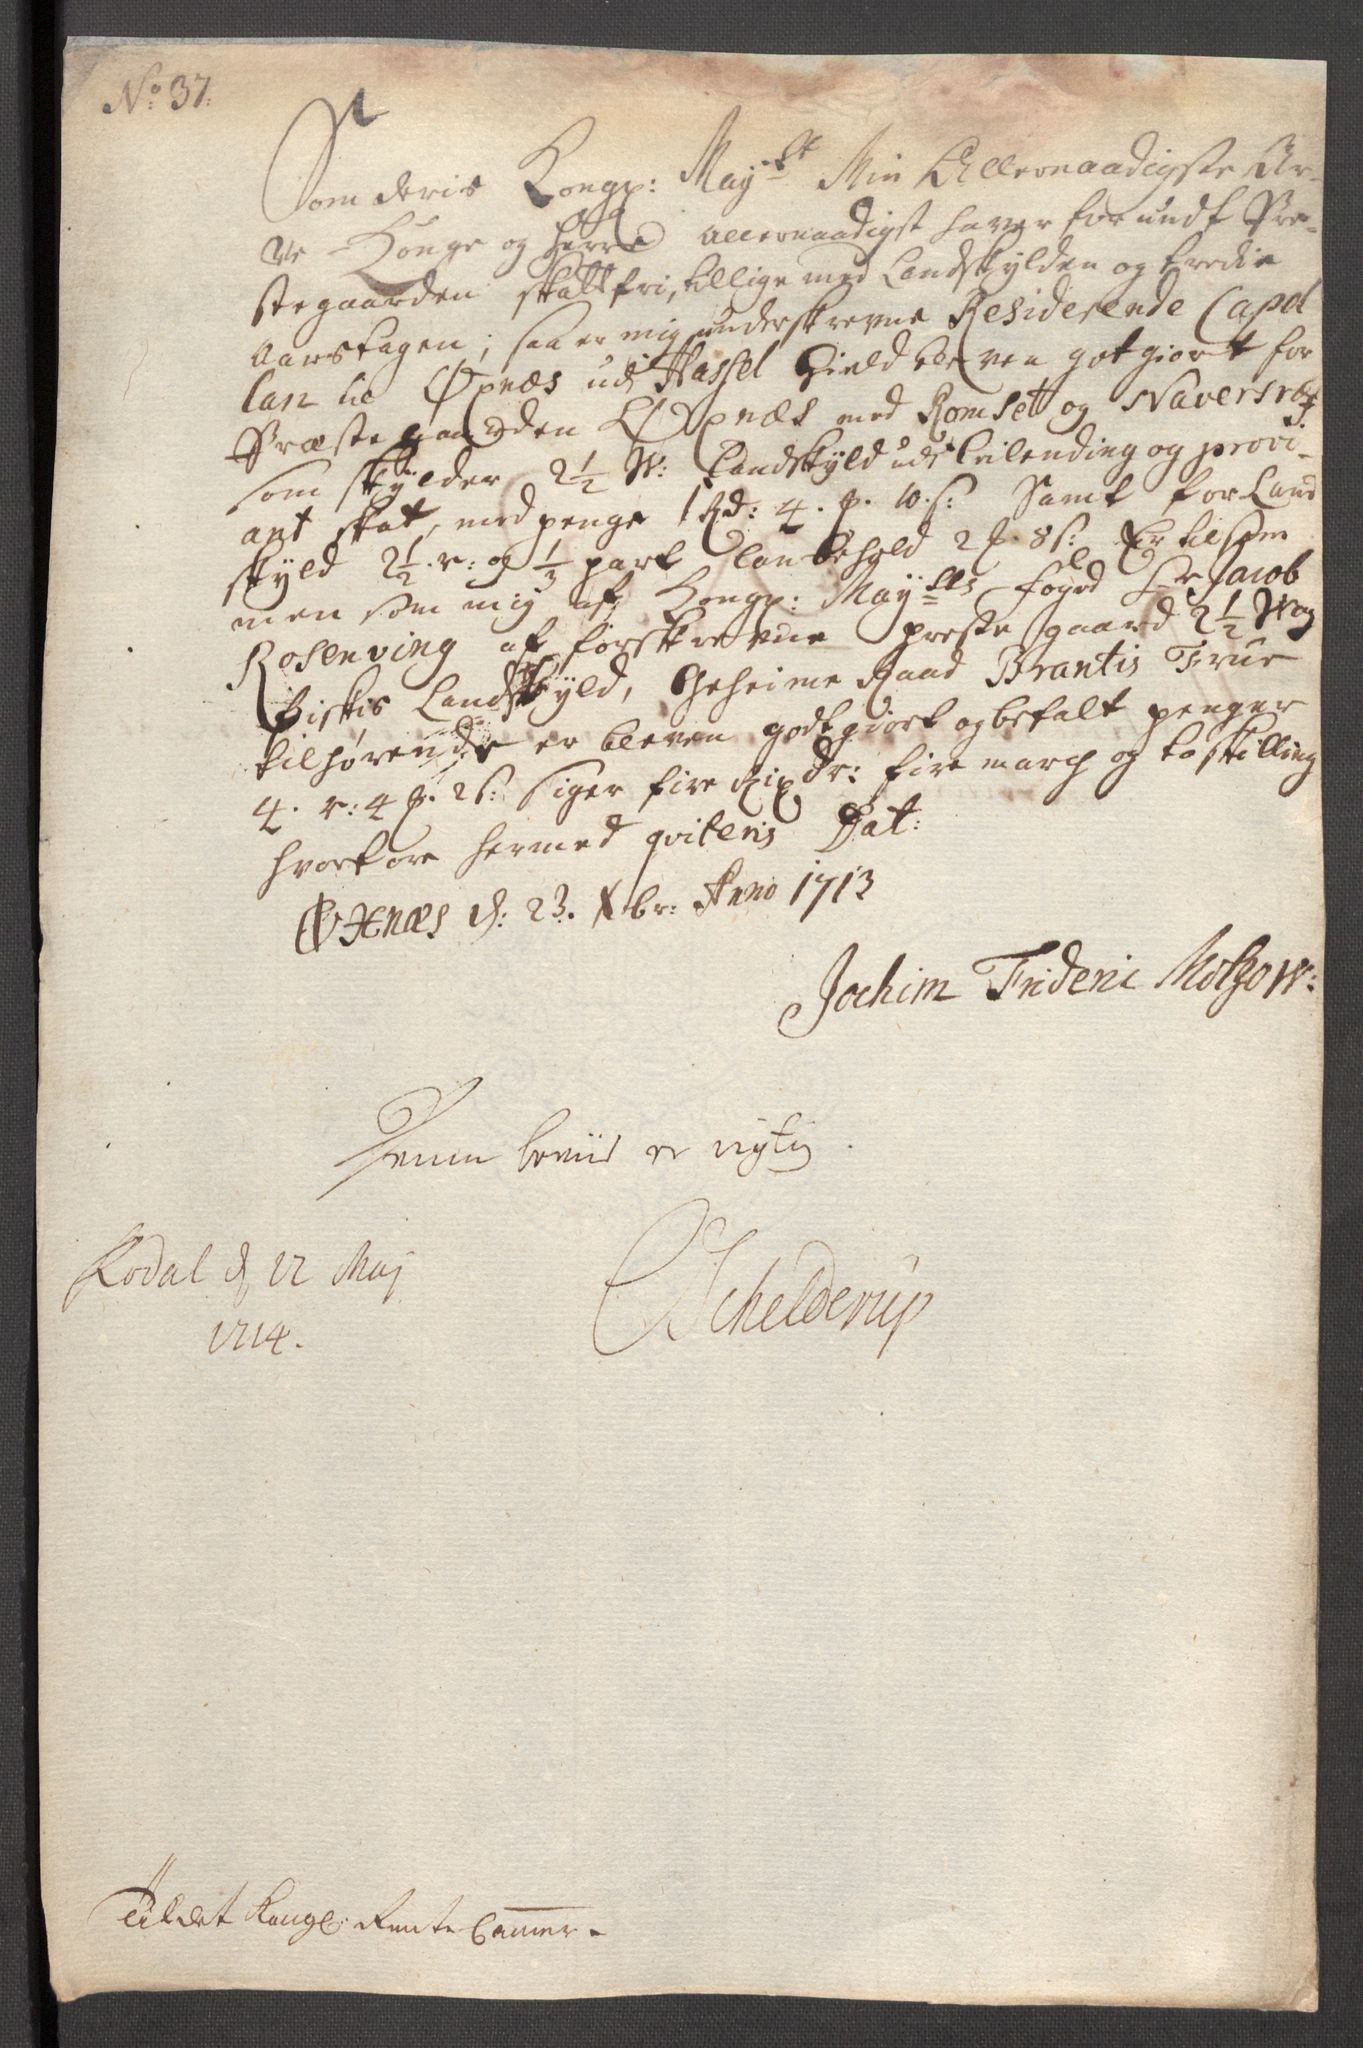 No: 37.
Som deris Kongl: Mayst: Min Allernaadigste Ar-
ve Konge og Herre allernaadigst haver forundt Pre-
stegaarden skattfri, tillige med Landskylden og tredie
Aarstagen; saa er mig underskrevne Residerende Capel
lan til Øxnæs udj Hassel Gield bleven gotgiort for
Præstegaarden Øxnæs med Romset og
som skylder 2½ W: Landskyld udj Leilending og provi-
ant skat, med penge 1 Rd: 4. ß. 10. s: Samt for Land
skyld 2½. r: og ⅓ part 2 ß. 8 s: Er tilsam
men som mig af Kongl: Mayts foged Sr Jacob
Rosenving af forskrevne preste gaard 2½ Wog
Fiskis Landskyld, Geheime Raad Brantis Frue
tilhørende er bleven godtgiort og betalt penger
4. r: 4 ß. 2 s: siger fire Rixdr: fire march og to skilling
hvorfore hermed qviteris Dat:
Øxnæs d: 23. Xbr: Anno 1713
Jochim Frideric Molzow:
Denne beviis er rigtig.
Lodal d 22 Maj
1714.
Schelderup
Til det Kongl: Rente Cammer.